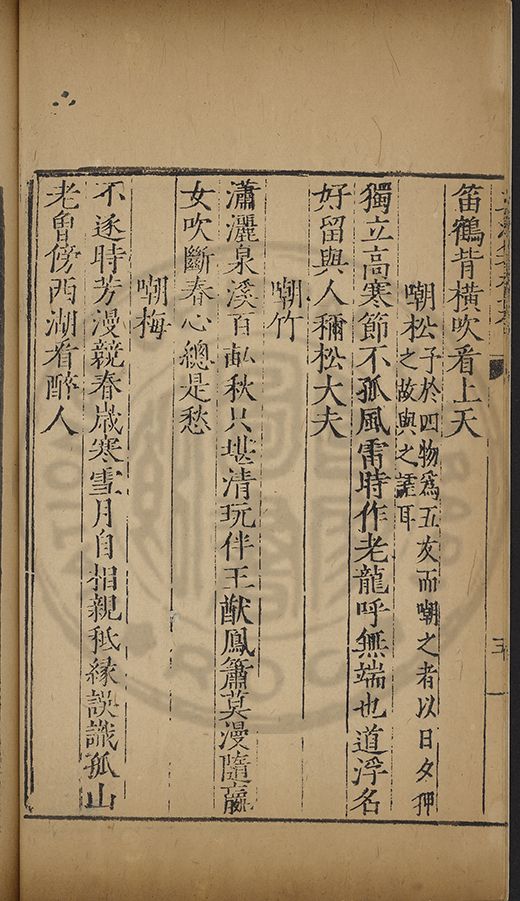 笛鶴背橫吹看上天
嘲松予於四物爲五友而嘲之者以日夕狎
之故與之謔耳
獨立高寒節不孤風雷時作老龍呼無端也道浮名
好留與人稱松大夫
嘲竹
瀟灑泉溪百畝秋只堪清玩伴王猷鳳簫莫漫隨嬴
女吹斷春心總是愁
嘲梅
不逐時芳漫競春歲寒雪月自相親秖緣誤識孤山
老曾傍西湖看醉人
五